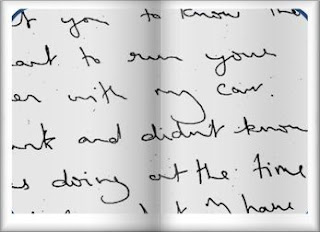 t you to know tha
ant to run your
er with my car.
unk and didn't know
s doing at the time
t I have